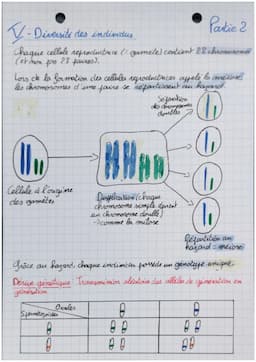 V - Diversité des individus
Partie 2
Chaque cellule reproductrice (= gamète) contient 23 chromosomes
(et non pas 23 paires).
Lors de la formation des cellules reproductrices appelée la méiose
les chromosomes d'une paire se répartissent au hasard.
Séparation
des chromosomes
doubles
Cellule à l'origine
des gamètes
Duplication (chaque
chromosome simple devient
un chromosome double)
→ comme la mitose
Répartition au
hasard = méiose
Grâce au hasard, chaque individu possède un génotype unique.
Dérive génétique : Transmission aléatoire des cellules de génération en
génération
Ovules
Spermatozoïdes